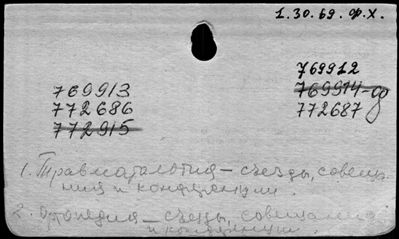 1.30.69. ф.х.
769912
769913
769914-д
772686
772687
772915
1. Травматология – съезды, совещания и конференции.
2. Ортопедия – съезды, совещания и конференции.